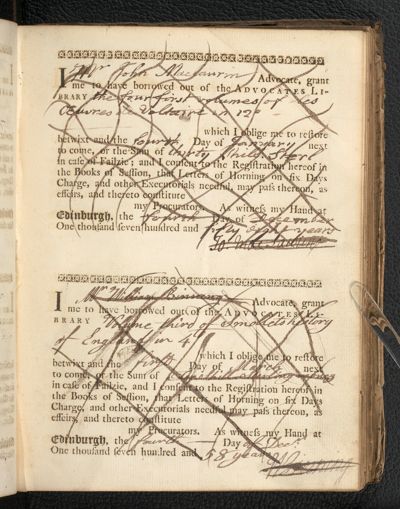 I Mr John Maclaurin Advocate, grant
me to have borrowed out of the ADVOCATES LI-
BRARY the four first volumes of les
Oeuvres de Voltaire in 12º
which I oblige me to restore
betwixt and the fourth Day of January next
to come, or the Sum of thirty shill: Sterl
in case of Failzie; and I consent to the Registration hereof in
the Books of Session, that Letters of Horning on six Days
Charge, and other Executorials needful, may pass thereon, as
effeirs, and thereto constitute
my Procurators. As witness my Hand at
Edinburgh, the fourth Day of December
One thousand seven hundred and fifty eight years
I Mr William Binning Advocate, grant
me to have borrowed out of the ADVOCATES LI-
BRARY Volume third of Smollets history
of England in 4º
which I oblige me to restore
betwixt and the Day of March next
to come, or the Sum of
in case of Failzie, and I consent to the Registration hereof in
the Books of Session, that Letters of Horning on six Days
Charge, and other Executorials needful may pass thereon, as
effeirs, and thereto constitute
my Procurators. As witness my Hand at
Edinburgh, the fourth Day of Decr
One thousand seven hundred and 58 years